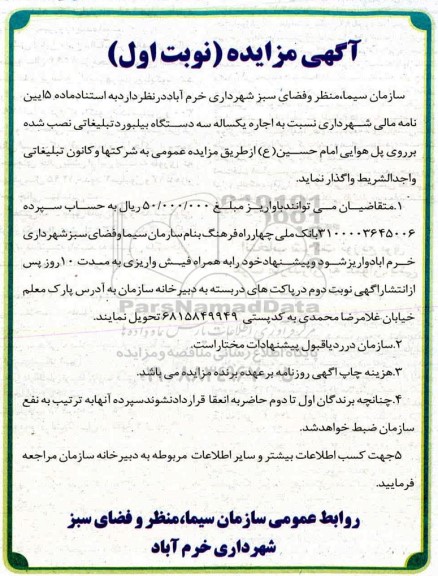 آگهی مزایده (نوبت اول)
سازمان سیما،منظر وفضای سبز شهرداری خرم آباددر نظرداردبه استنادماده ۵ایین
نامه مالی شهرداری نسبت به اجاره یکساله سه دستگاه بیلبوردتبلیغاتی نصب شده
برروی پل هوایی امام حسین( ع) ازطریق مزایده عمومی به شرکتها وکانون تبلیغاتی
واجدالشریط واگذار نماید.
۱.متقاضیان می توانندباواریز مبلغ ۵۰/۰۰۰/۰۰۰ ریال به حساب سپرده
۳۱۰۰۰۰۳۶۴۵۰۰۶بانک ملی چهارراه فرهنگ بنام سازمان سیماوفضای سبزشهرداری
خرم ابادواریزشود وپیشنهادخود رابه همراه فیش واریزی به مدت ۱۰روز پس
ازانتشاراگهی نوبت دوم درپاکت های دربسته به دبیرخانه سازمان به آدرس پارک معلم
خیابان غلامرضا محمدی به کدپستی ۶۸۱۵۸۴۹۹۴۹تحویل نمایند.
ParsNamadData
پایگاه اطلاع رسانی مناقصه و مزایده
۲.سازمان درردیاقبول پیشنهادات مختاراست.
۳.هزینه چاپ اگهی روزنامه برعهده برنده مزایده می باشد.
۴.چنانچه برندگان اول تا دوم حاضربه انعقا قراردادنشوندسپرده آنهابه ترتیب به نفع
سازمان ضبط خواهدشد.
۵جهت کسب اطلاعات بیشتر و سایر اطلاعات مربوطه به دبیرخانه سازمان مراجعه
فرمایید.
روابط عمومی سازمان سیما،منظر و فضای سبز
شهرداری خرم آباد